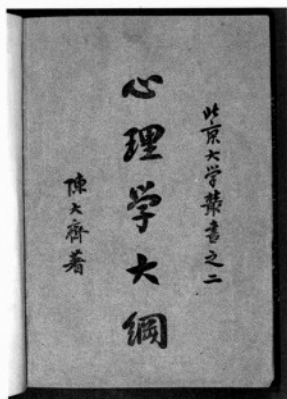 北京大学叢書之二
心理学大綱
陳大齊著